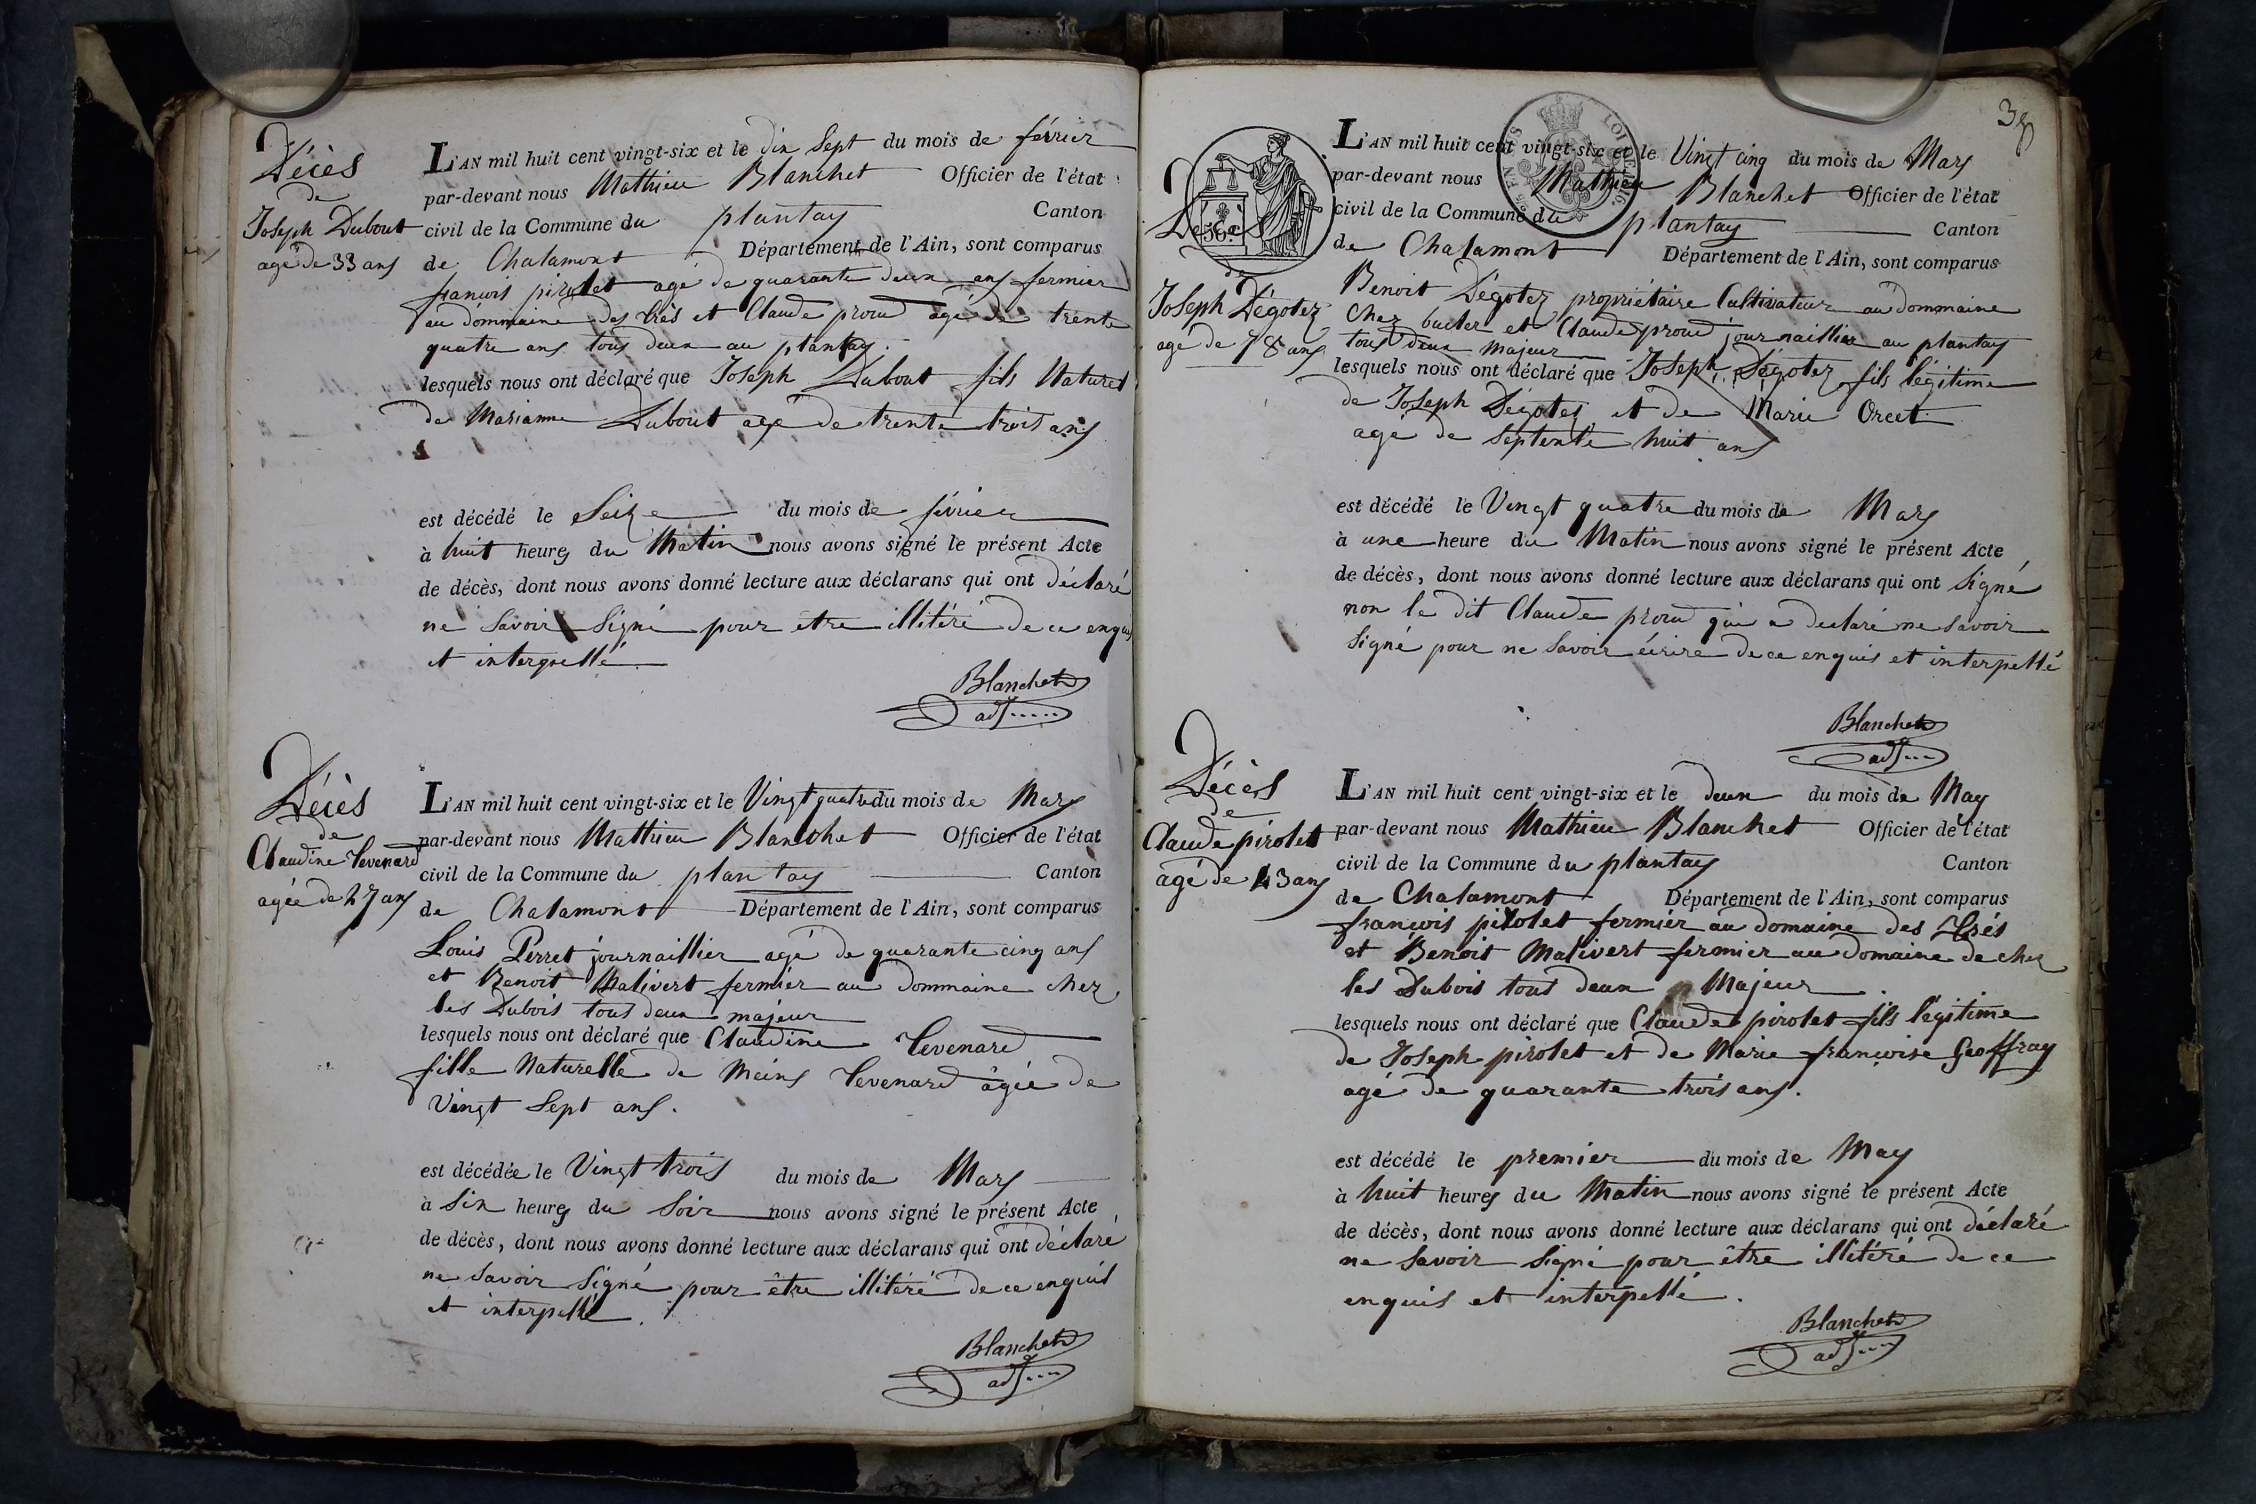 Décès
de
Joseph Dubout
agé de 33 ans
L'AN mil huit cent vingt-six et le dix Sept du mois de février
par-devant nous Mathieu Blanchet Officier de l'état
civil de la Commune du plantay Canton
de Chalamont Département de l'Ain, sont comparus
francois pirolet agé de quarante deux ans fermier
au dommaine des et Claude proud agé de trente
quatre ans tous deux au plantay.
lesquels nous ont déclaré que Joseph Dubout fils Naturel
de Marianne Dubout agé de trente trois ans
est décédé le Seize du mois de février
à huit heures du Matin nous avons signé le présent Acte
de décès, dont nous avons donné lecture aux déclarans qui ont déclaré
ne Savoir Signé pour etre illitéré de ce enquis
et interpellé
Blanchet
adj
Décès
de
Claudine Tevenard
agée de 27 ans
L'AN mil huit cent vingt-six et le Vingt quatre du mois de Mars
par-devant nous Mathieu Blanchet Officier de l'état
civil de la Commune du plantay Canton
de Chalamont Département de l'Ain, sont comparus
Louis Perret journaillier agé de quarante cinq ans
et Benoit Malivert fermier au dommaine chez
les Dubois tous deux majeur
lesquels nous ont déclaré que Claudine Tevenard
fille Naturelle de Tevenard âgée de
Vingt Sept ans.
est décédée le Vingt trois du mois de Mars
à Six heures du Soir nous avons signé le présent Acte
de décès, dont nous avons donné lecture aux déclarans qui ont déclaré
ne Savoir Signé pour être illitéré de ce enquis
et interpellé
Blanchet
adj
38
Décès
de
Joseph Dégotez
agé de 78 ans
L'AN mil huit cent vingt-six et le Vingt cinq du mois de Mars
par-devant nous Mathieu Blanchet Officier de l'état
civil de la Commune du plantay Canton
de Chalamont Département de l'Ain, sont comparus
Benoit Dégotez propriétaire Cultivateur au dommaine
Chez et Claude proud journaillier au plantay
tous deux majeur
lesquels nous ont déclaré que Joseph Dégotez fils légitime
de Joseph Dégotez et de Marie Orcet
agé de septente huit ans
est décédé le Vingt quatre du mois de Mars
à une heure du Matin nous avons signé le présent Acte
de décès, dont nous avons donné lecture aux déclarans qui ont Signé
non le dit Claude proud qui a declaré ne savoir
Signé pour ne Savoir écrire de ce enquis et interpellé
Blanchet
adj
Décès
de
Claude pirolet
agé de 43 ans
L'AN mil huit cent vingt-six et le deux du mois de May
par-devant nous Mathieu Blanchet Officier de l'état
civil de la Commune du plantay Canton
de Chalamont Département de l'Ain, sont comparus
françois pirolet fermier au domaine des
et Benoit Malivert fermier au domaine de chez
les Dubois tous deux Majeur
lesquels nous ont déclaré que Claude pirolet fils légitime
de Joseph pirolet et de Marie françoise Geoffray
agé de quarante trois ans.
est décédé le premier du mois de May
à huit heures du Matin nous avons signé le présent Acte
de décès, dont nous avons donné lecture aux déclarans qui ont déclaré
ne Savoir Signé pour être illitéré de ce
enquis et interpellé.
Blanchet
adj